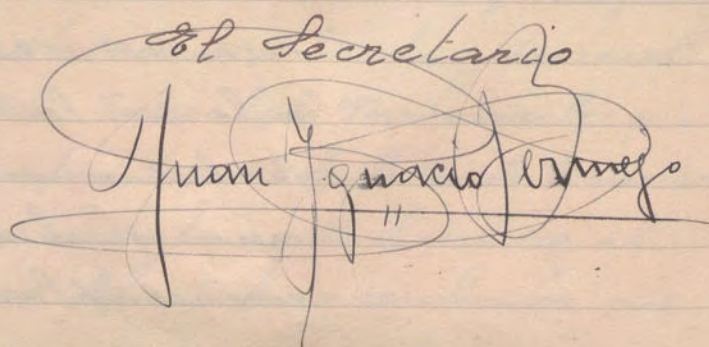 El Secretario
Juan Ignacio Bermejo